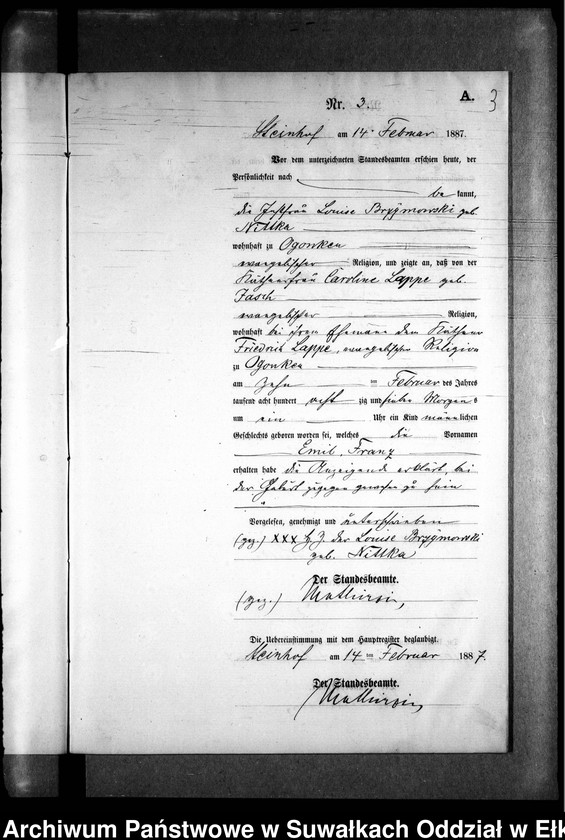 A. 3
Nr. 3.
Steinhof am 14. Februar 1887.
Vor dem unterzeichneten Standesbeamten erschien heute, der
Persönlichkeit nach
be kannt,
die Louise Brzymowski geb.
Nittka
wohnhaft zu Ogonken
evangelischer Religion, und zeigte an, daß von der
Käthnerfrau Caroline Lappe geb.
Jasch
evangelischer Religion,
wohnhaft bei ihrem Ehemann dem Käthner
Friedrich Lappe, evangelischer Religion
zu Ogonken
am zehn ten Februar des Jahres
tausend acht hundert acht zig und sieben Morgens
um ein Uhr ein Kind männlichen
Geschlechts geboren worden sei, welches die Vornamen
Emil, Franz
erhalten habe die Anzeigende erklärt, bei
der Geburt zugegen gewesen zu sein
Vorgelesen, genehmigt und unterschrieben
(gez.) XXX H. Z. der Louise Brzymowski
geb. Nittka
Der Standesbeamte.
(gez.)
Die Uebereinstimmung mit dem Hauptregister beglaubigt.
Steinhof am 14 ten Februar 1887.
Der Standesbeamte.
Archiwum Państwowe w Suwałkach Oddział w Ełk